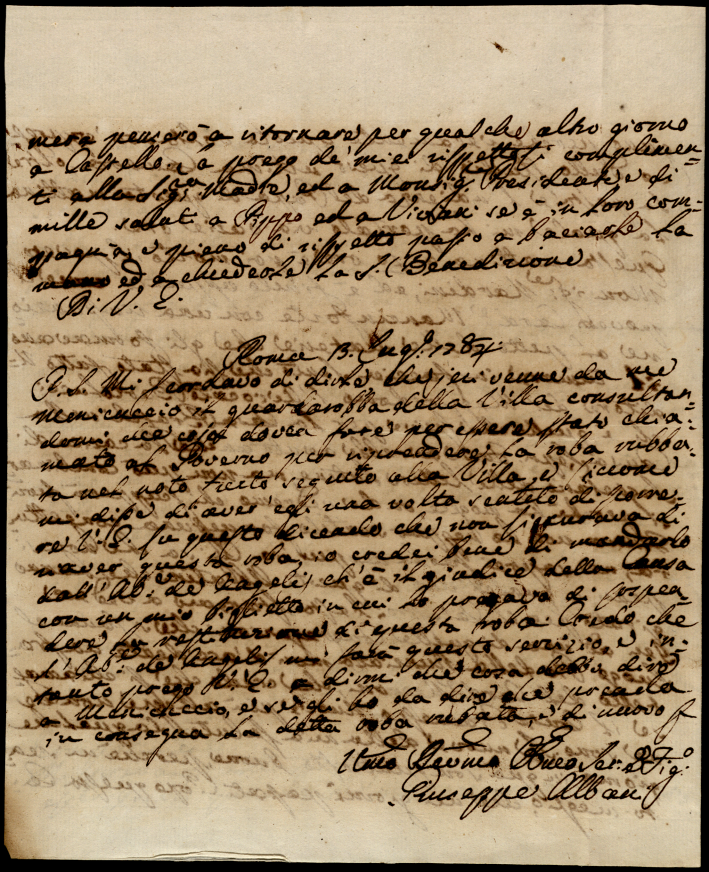 mera penserò a ritornare per qualche altro giorno
a Castello. La prego de' miei rispettosi complimen=
ti alla Sig.ra Madre, ed a Monsig.r Presidente e di
mille saluti a Pippo ed a Viviani se è in loro com=
pagnia, e pieno di rispetto passo a baciarle la
mano ed a chiederle la S. Benedizione
Di V. E.
Roma 13. Lug.o 1784.
P. S. Mi scordavo di dirle, che jeri venne da me
Menicuccio il guardarobba della Villa consultan=
domi che cosa dovea fare per essere stato chia=
mato al Governo per riprendere la roba rubba=
ta nel noto furto seguito alla Villa, e siccome
mi disse d'aver' egli una volta sentito di
re V. E. su questo dicendo che non si curava di
riaver questa roba, io credei bene di mandarlo
dall' Ab.e de Angelis ch' è il giudice della Causa
con un mio biglietto in cui lo pregava di sospen=
dere la restituzione di questa roba. Credo che
l'Ab.e de Angelis mi farà questo servizio, e in=
tanto prego V. E. a dirmi che cosa debbo dire
a Menicuccio, e se gli ho da dire che prenda
in consegna la detta roba rubata, e di nuovo
Umo Devmo Obmo Ser. e Fig.o
Giuseppe Albani